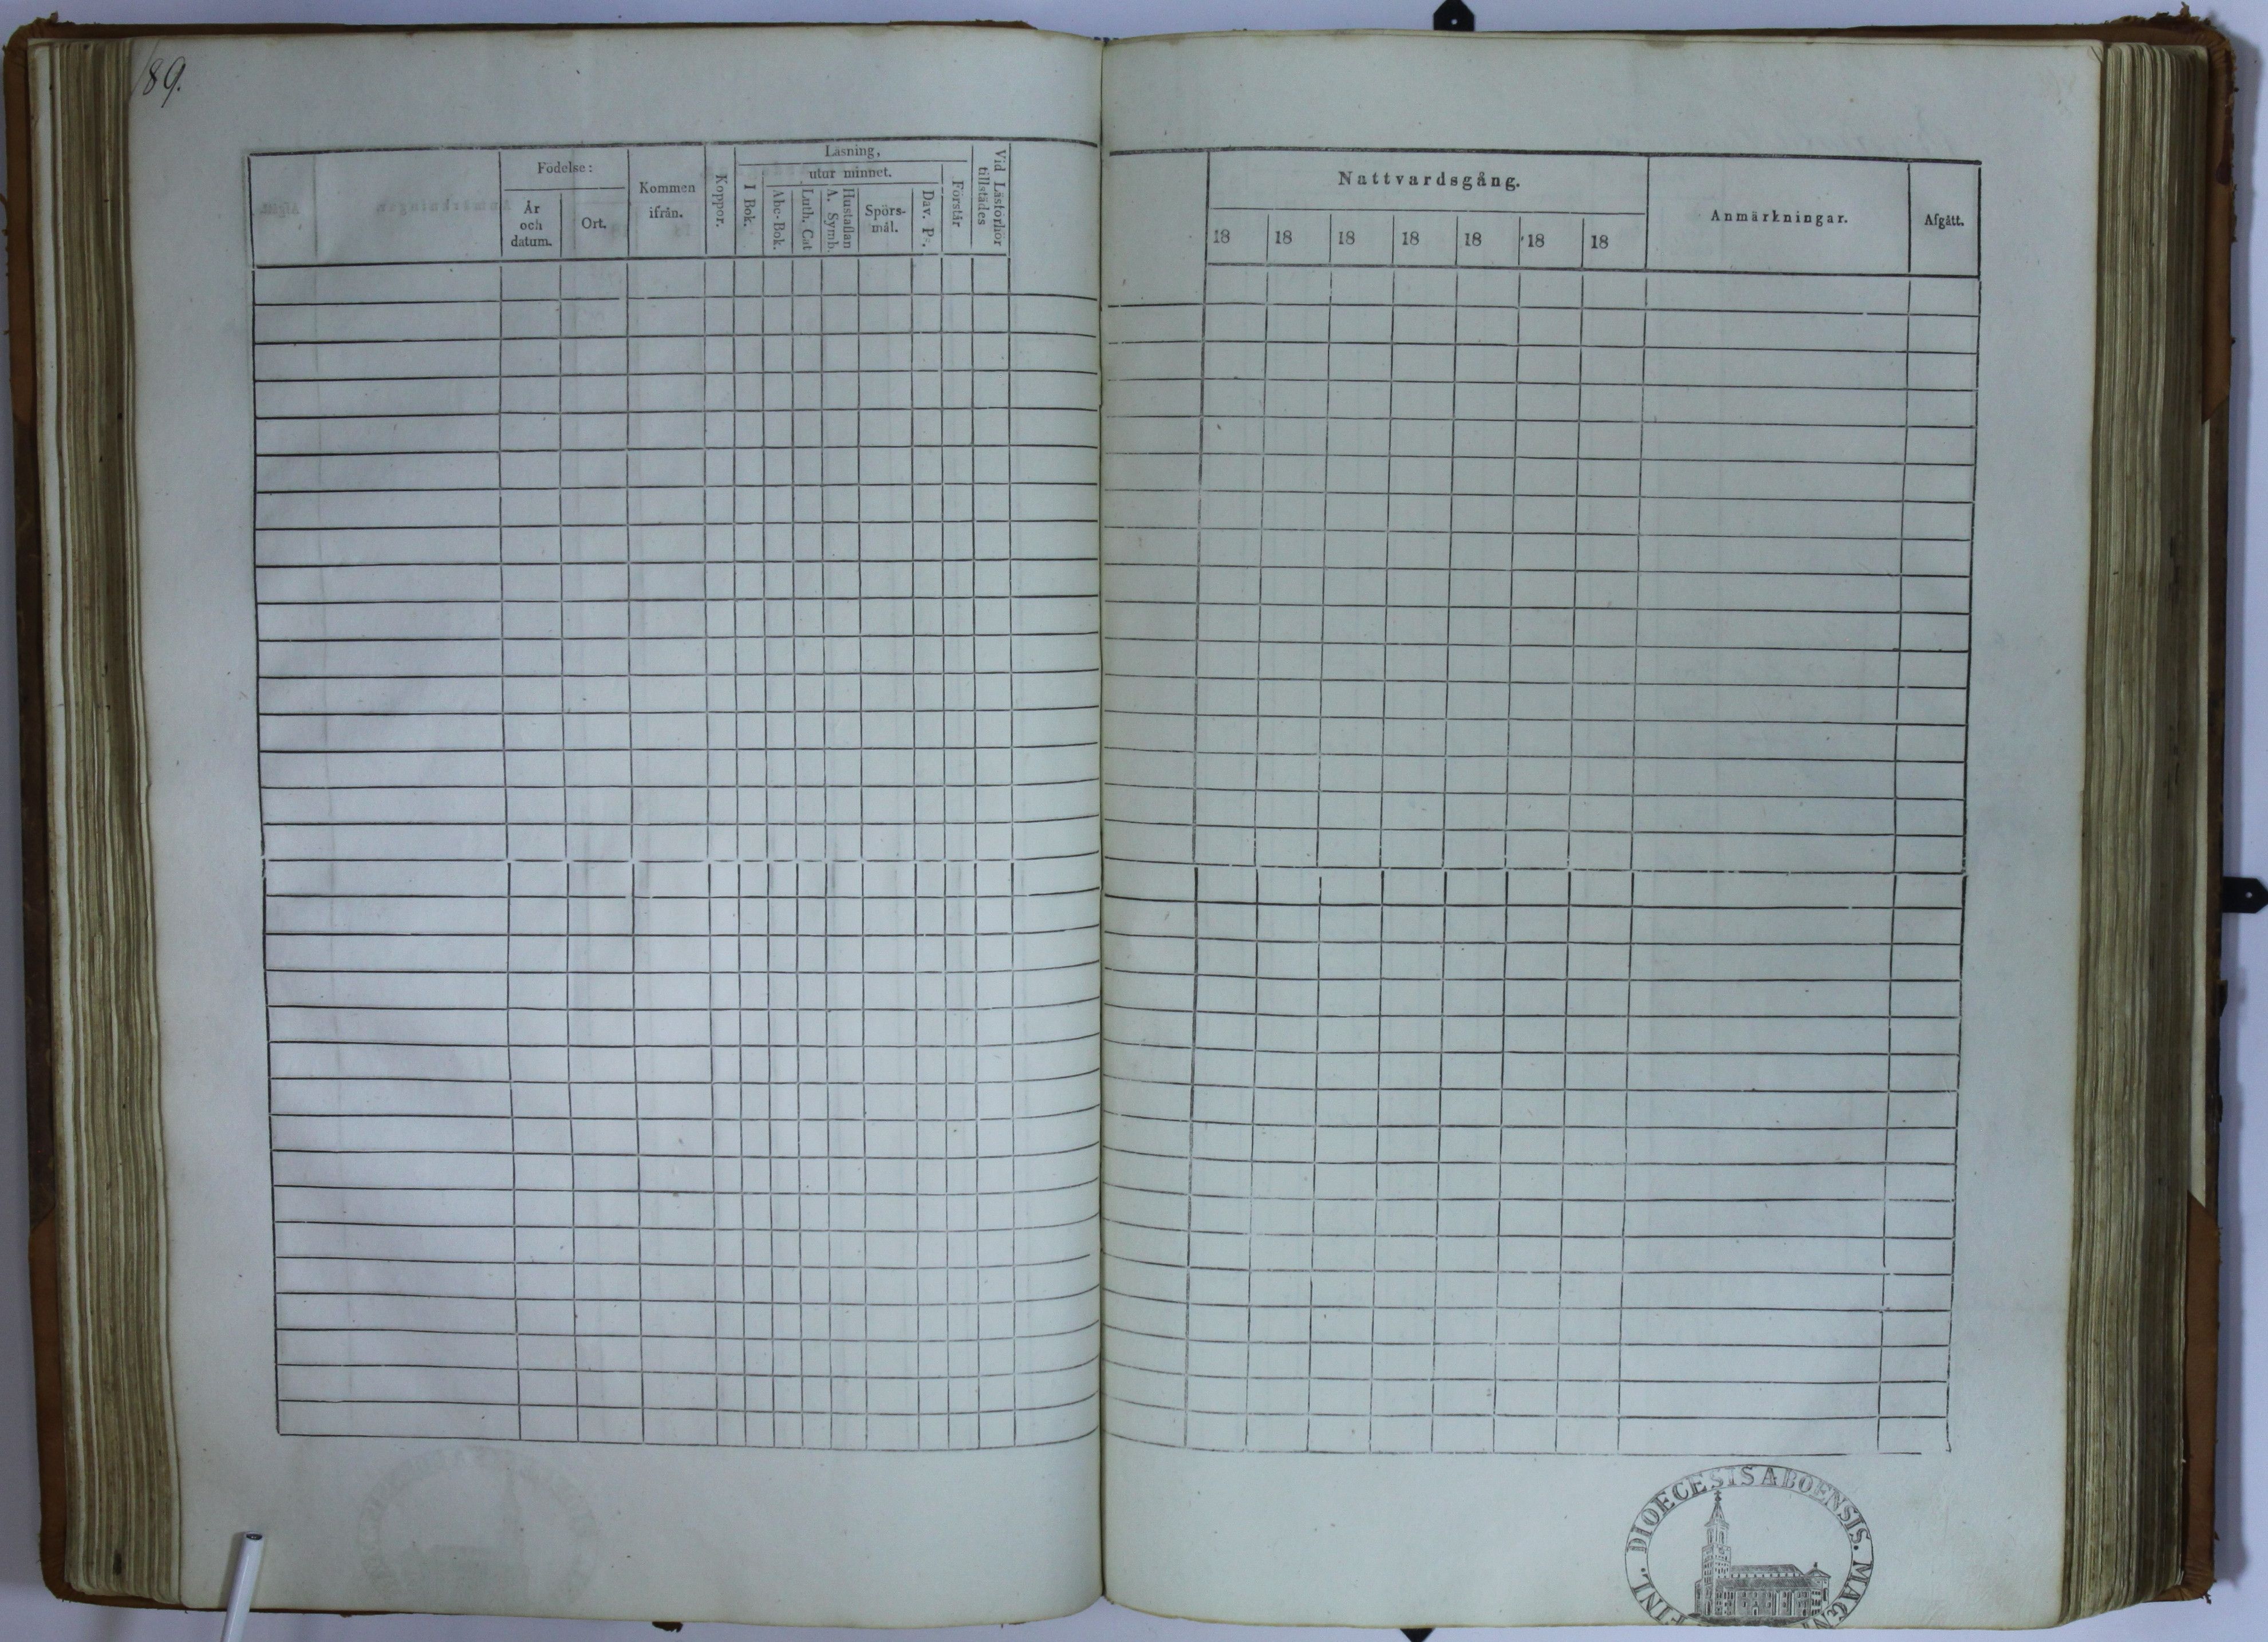 189.
Födelse:
År
och
datum.
Ort.
Kommen
ifrån.
Koppor.
Läsning,
I Bok.
utur minnet.
Abc-Bok.
Luth. Cat
Hustaflan
A. Symb.
Spörs-
mål.
Dav. Ps.
Förstår
Vid Läsförhör
tillstädes
Nattvardsgång.
18 18 18 18 18 18 18
Anmärkningar.
Afgått.
FINL. DIOECESIS ABOENSIS. MAGNI